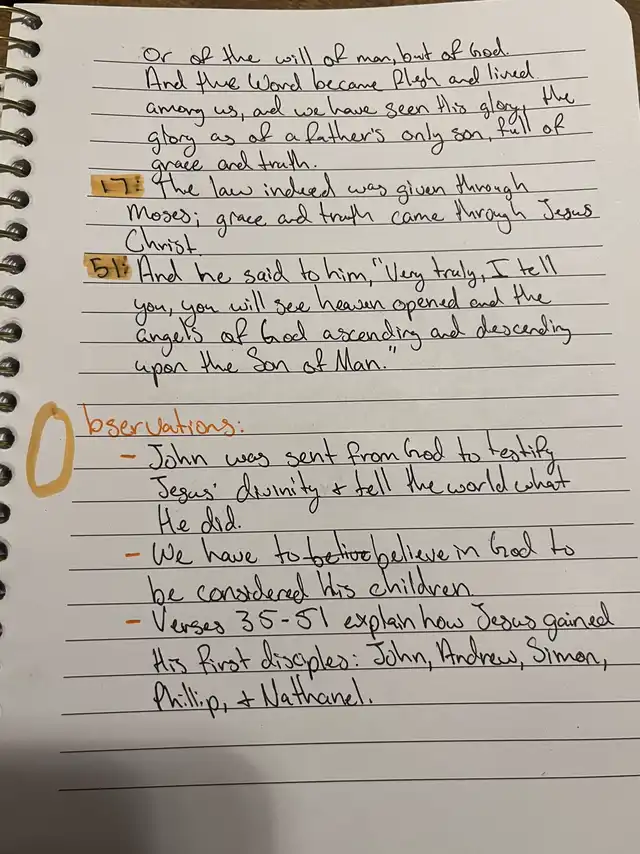 Or of the will of man, but of God.
And the Word became flesh and lived
among us, and we have seen His glory, the
glory as of a father's only son, full of
grace and truth.
17: The law indeed was given through
Moses; grace and truth came through Jesus
Christ.
51: And he said to him, "Very truly, I tell
you, you will see heaven opened and the
angels of God ascending and descending
upon the Son of Man."
Observations:
- John was sent from God to testify
Jesus' divinity & tell the world what
He did.
- We have to believe in God to
be considered His children.
- Verses 35-51 explain how Jesus gained
His first disciples: John, Andrew, Simon,
Phillip, & Nathanel.